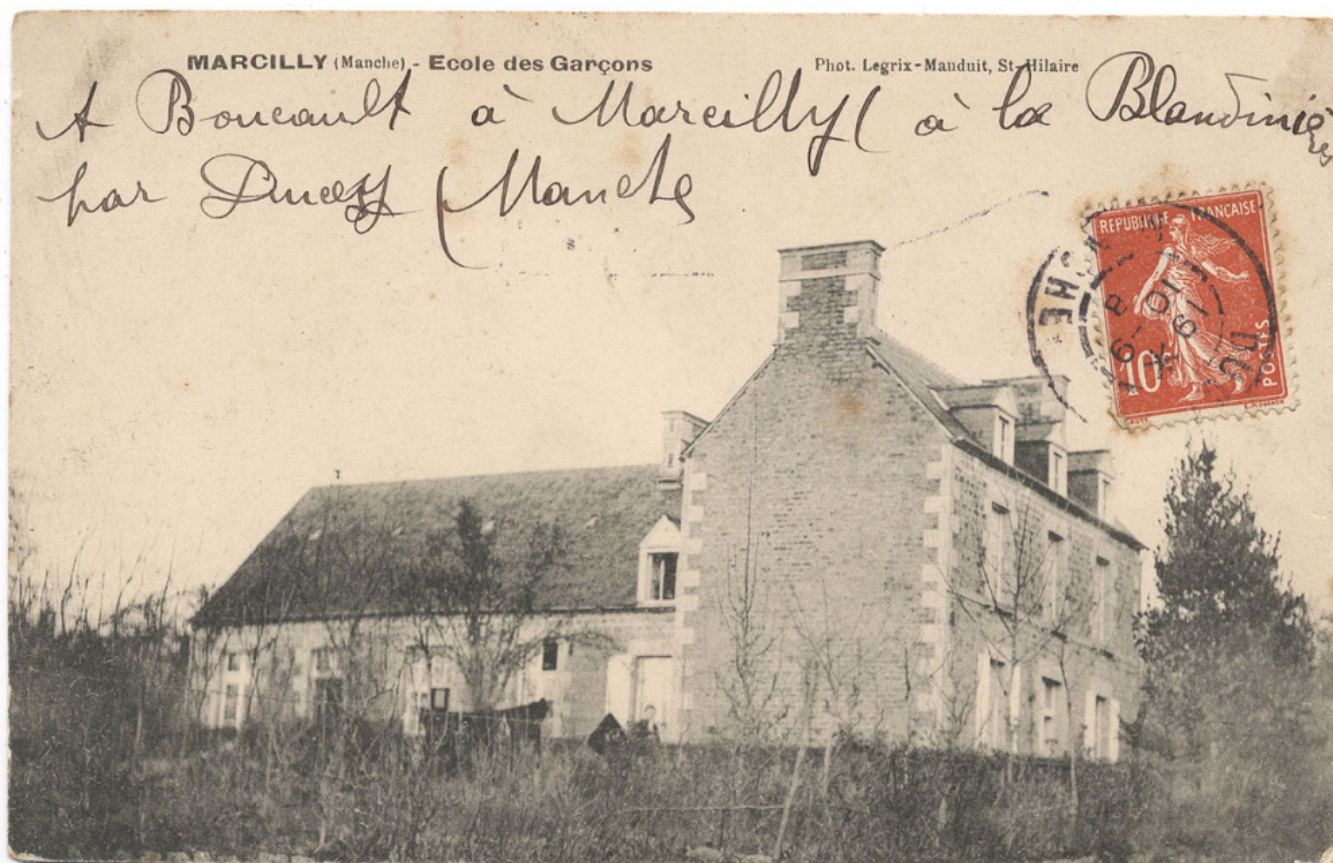 MARCILLY (Manche) - Ecole des Garçons
Phot. Legrix-Mauduit, St-Hilaire
A Boucault à Marcilly ( à la Blandinière
par Ducey (Manche
REPUBLIQUE FRANÇAISE
10
POSTES